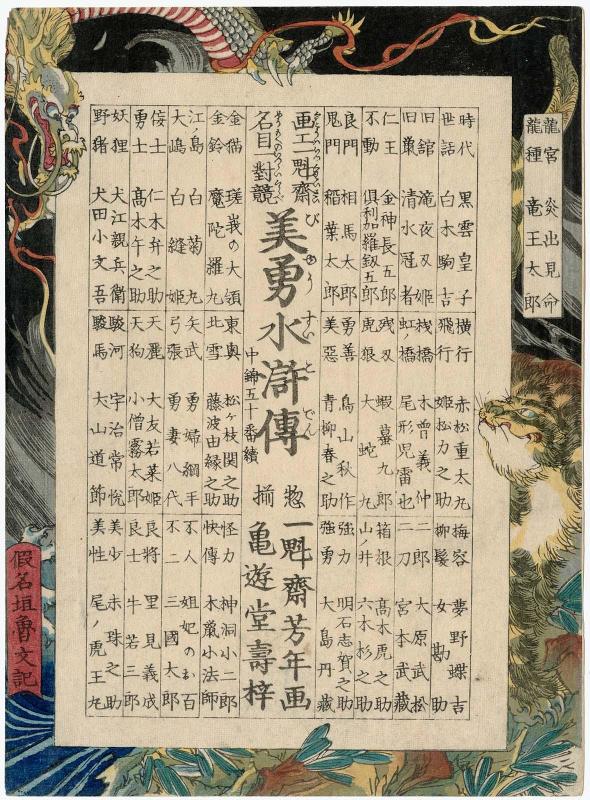 龍宮 炎出見命
龍種 竜王太郎
時代 黒雲皇子 横行 赤松重太丸 梅容 夢野蝶吉
世話 白木駒吉 飛行 姫松力之助 柳髪 女勘助
旧舘 滝夜叉姫 棧橋 木曽義仲 二郎 大原武松
旧巣 清水冠者 虹ノ橋 尾形児雷也 二刀 宮本武藏
仁王 金神長五郎 残叉 蝦蟇九郎 箱根 高木虎之助
不動 倶利加羅釼五郎 虎狼 大蛇丸 山ノ井 六本杉之助
良門 相馬太郎 勇善 鳥山秋作 強力 明石志賀之助
鬼門 稲葉太郎 美惡 青柳春之助 強勇 大島丹藏
画工魁齋
名目對競
美勇水滸傳
びゆうすいこでん
中錦五十番續
惣揃
一魁齋芳年画
亀遊堂壽梓
金猫 瑳峩の大領 東奥 松ヶ枝関之助 怪力 神洞小二郎
金鈴 魔陀羅丸 北雪 藤波由縁之助 快傳 木鼠小法師
江ノ島 白菊丸 矢武 勇婦綱手 不人 姐妃のお百
大嶋 白縫姫 弓張 勇妻八代 不二 三國太郎
侫士 仁木弁之助 天麗 大友若菜姫 良將 里見義成
勇士 高木午之助 天狗 小僧霧太郎 良士 牛若三郎
妖狸 犬江親兵衛 駿河 宇治常悦 美少 赤珠之助
野猪 犬田小文吾 駿馬 犬山道節 美性 尾ノ虎王丸
假名垣魯文記